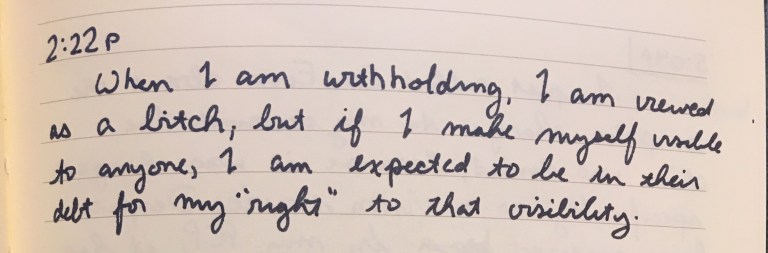 2:22 P
When I am withholding, I am viewed
as a bitch, but if I make myself visible
to anyone, I am expected to be in their
debt for my "right" to that visibility.